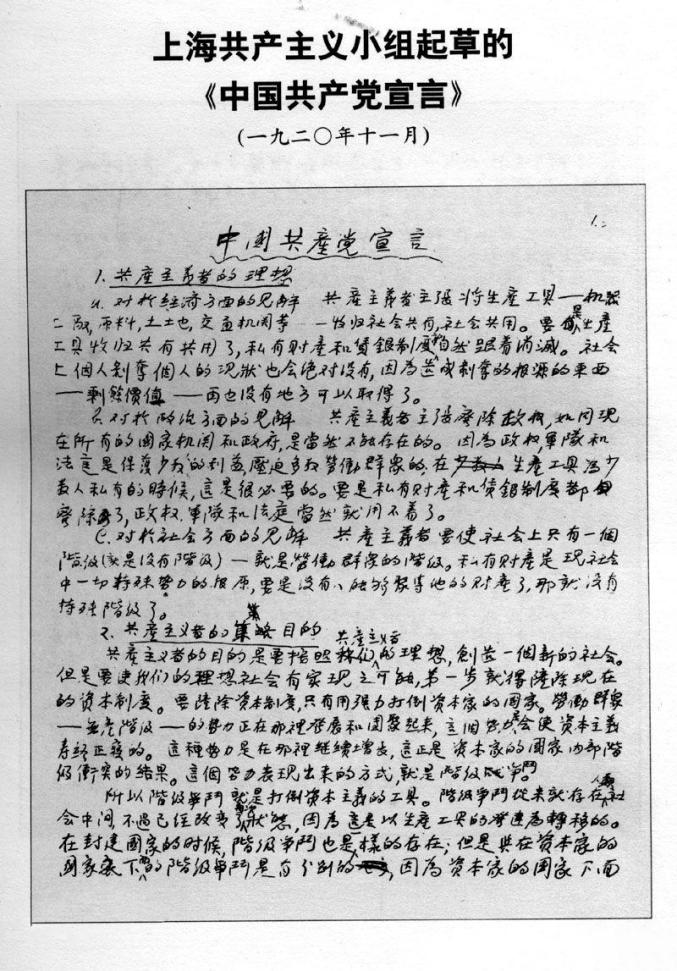 上海共产主义小组起草的
《中国共产党宣言》
(一九二〇年十一月)
1.
中国共產党宣言
1. 共產主義者的理想
a. 对於經濟方面的见解 共產主義者主張将生產工具——机器
工廠,原料,土地,交通机関等——收归社会共有,社会共用。要是生產
工具收归共有共用了,私有财產和賃銀制度自然跟着消滅。社会
上個人剥奪個人的现狀也会绝对没有,因為造成剥奪的根源的東西
——剩餘價值——再也没有地方可以取得了。
B. 对於政治方面的见解 共產主義者主張廢除政权,如同现
在所有的國家机関和政府,是當然不能存在的。因為政权,軍隊和
法庭是保護少数的利益,壓迫多数勞働群衆的,在生產工具為少
数人私有的時候,這是很必要的。要是私有财產和賃銀制度都
廢除了,政权,軍隊和法庭當然就用不着了。
C. 对於社会方面的见解 共產主義者要使社会上只有一個
階级(就是没有階级)——就是勞働群衆的階级。私有财產是现社会
中一切特殊势力的根原,要是没有人能够聚集他的财產了,那就没有
特殊階级了。
2. 共產主义者的目的
共產主义者的目的是要按照共產主义者的理想,創造一個新的社会。
但是要使我们的理想社会有实现之可能,第一步就得鏟除现在
的资本制度。要鏟除资本制度,只有用强力打倒资本家的國家。勞働群衆
——無產階级——的势力正在那裡發展和团聚起来,這個势力会使资本主義
寿終正寝的。這種势力是在那裡继續增長,這正是资本家的國家内部階
级衝突的结果。這個势力表现出来的方式,就是階级争鬥。
所以階级争鬥就是打倒资本主義的工具。階级争鬥從来就存在人類社
会中间,不過已经改变了狀態,因為這是以生產工具的發達為轉移的。
在封建國家的时候,階级争鬥也是一樣的存在;但是與在资本家的
國家底下的階级争鬥是有分别的,因為资本家的國家下面